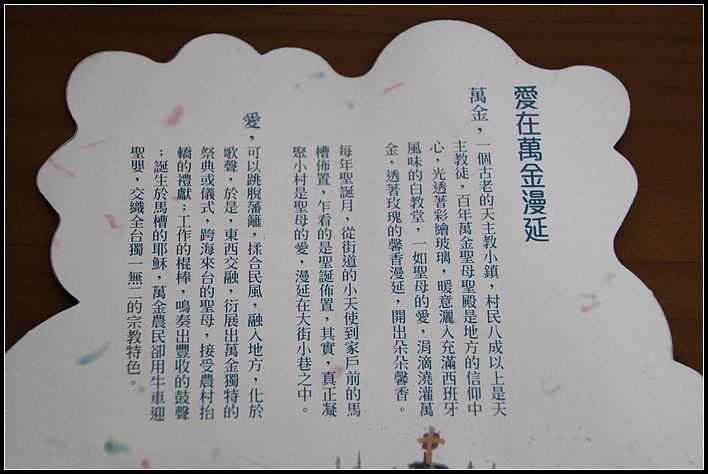 愛在萬金漫延
萬金，一個古老的天主教小鎮，村民八成以上是天
主教徒，百年萬金聖母聖殿是地方的信仰中
心，光透著彩繪玻璃，暖意灑入充滿西班牙
風味的白教堂，一如聖母的愛，涓滴澆灌萬
金，透著玫瑰的馨香漫延，開出朵朵馨香。
每年聖誕月，從街道的小天使到家戶前的馬
槽佈置，乍看的是聖誕佈置，其實，真正凝
聚小村是聖母的愛，漫延在大街小巷之中。
愛，可以跳脫藩籬，揉合民風，融入地方，化於
歌聲，於是，東西交融，衍展出萬金獨特的
祭典或儀式，跨海來台的聖母，接受農村抬
轎的禮獻；工作的棍棒，鳴奏出豐收的鼓聲
；誕生於馬槽的耶穌，萬金農民卻用牛車迎
聖嬰，交織全台獨一無二的宗教特色。